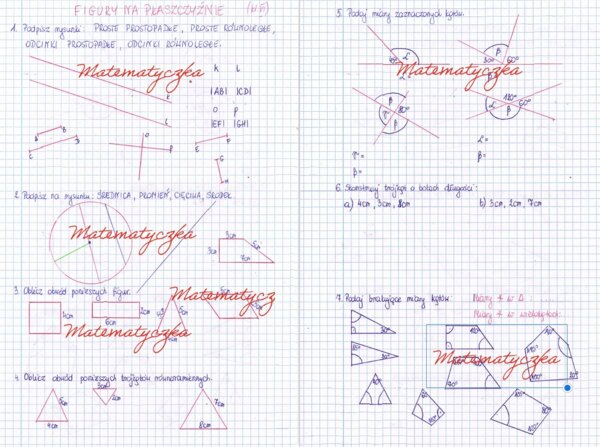 FIGURY NA PŁASZCZYŹNIE
1. Podpisz rysunki: PROSTE PROSTOPADŁE, PROSTE RÓWNOLEGŁE,
ODCINKI PROSTOPADŁE, ODCINKI RÓWNOLEGŁE.
Matematyczka
K L
|AB| |CD|
O P
|EF| |GH|
K
L
A
B
C
D
O
P
E
F
G
H
2. Podpisz na rysunku: ŚREDNICA, PROMIEŃ, CIĘCIWA, ŚRODEK.
Matematyczka
3cm
3cm
5cm
7cm
3. Oblicz obwód poniższych figur.
Matematyczka
Matematyczka
4cm
6cm
2cm
4. Oblicz obwód poniższych trójkątów równoramiennych.
4cm
5cm
2cm
8cm
7cm
5. Podaj miary zaznaczonych kątów.
Matematyczka
40°
α
β
30°
60°
α
β
γ
80°
β
120°
α
60°
β
γ=
β=
α=
β=
6. Skonstruuj trójkąt o bokach długości:
a) 4cm, 3cm, 8cm
b) 3cm, 2cm, 7cm
7. Podaj brakujące miary kątów:
Miary ∢ w Δ:
Miary ∢ w wielokątach:
Matematyczka
30°